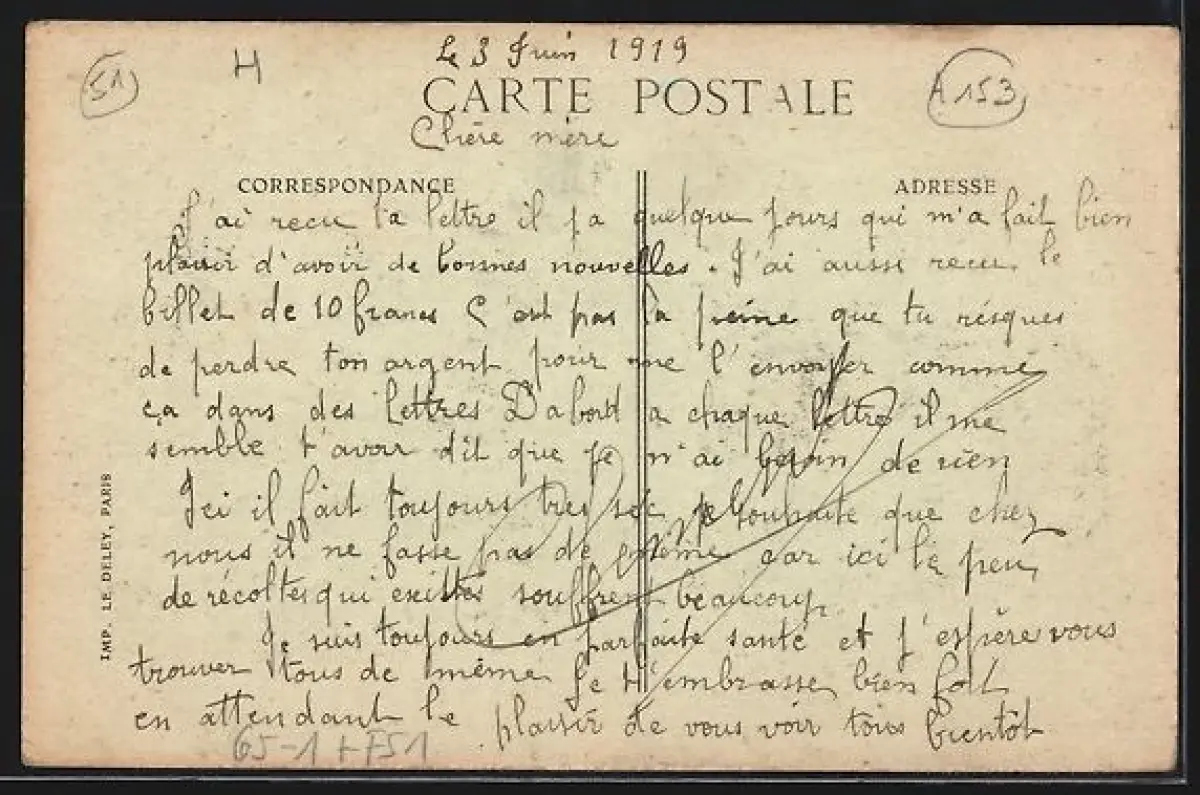 Le 3 Juin 1919
51
H
CARTE POSTALE
A 153
Chère mère
CORRESPONDANCE
ADRESSE
J'ai recu ta lettre il ya quelque jours qui m'a fait bien
plaisir d'avoir de bonnes nouvelles. J'ai aussi recu le
billet de 10 francs C'est pas la peine que tu risques
de perdre ton argent pour me l'envoyer comme
ça dans des lettres D'abord a chaque lettre il me
semble t'avoir dit que je n'ai besoin de rien
Ici il fait toujours tres sec je souhaite que chez
nous il ne fasse pas de même car ici le peu
de récoltes qui existes souffrent beaucoup.
Je suis toujours en parfaite santé et j'espère vous
trouver tous de même Je t'embrasse bien fort
en attendant le plaisir de vous voir tous bientôt
65-1+F51
IMP. LE DELEY, PARIS